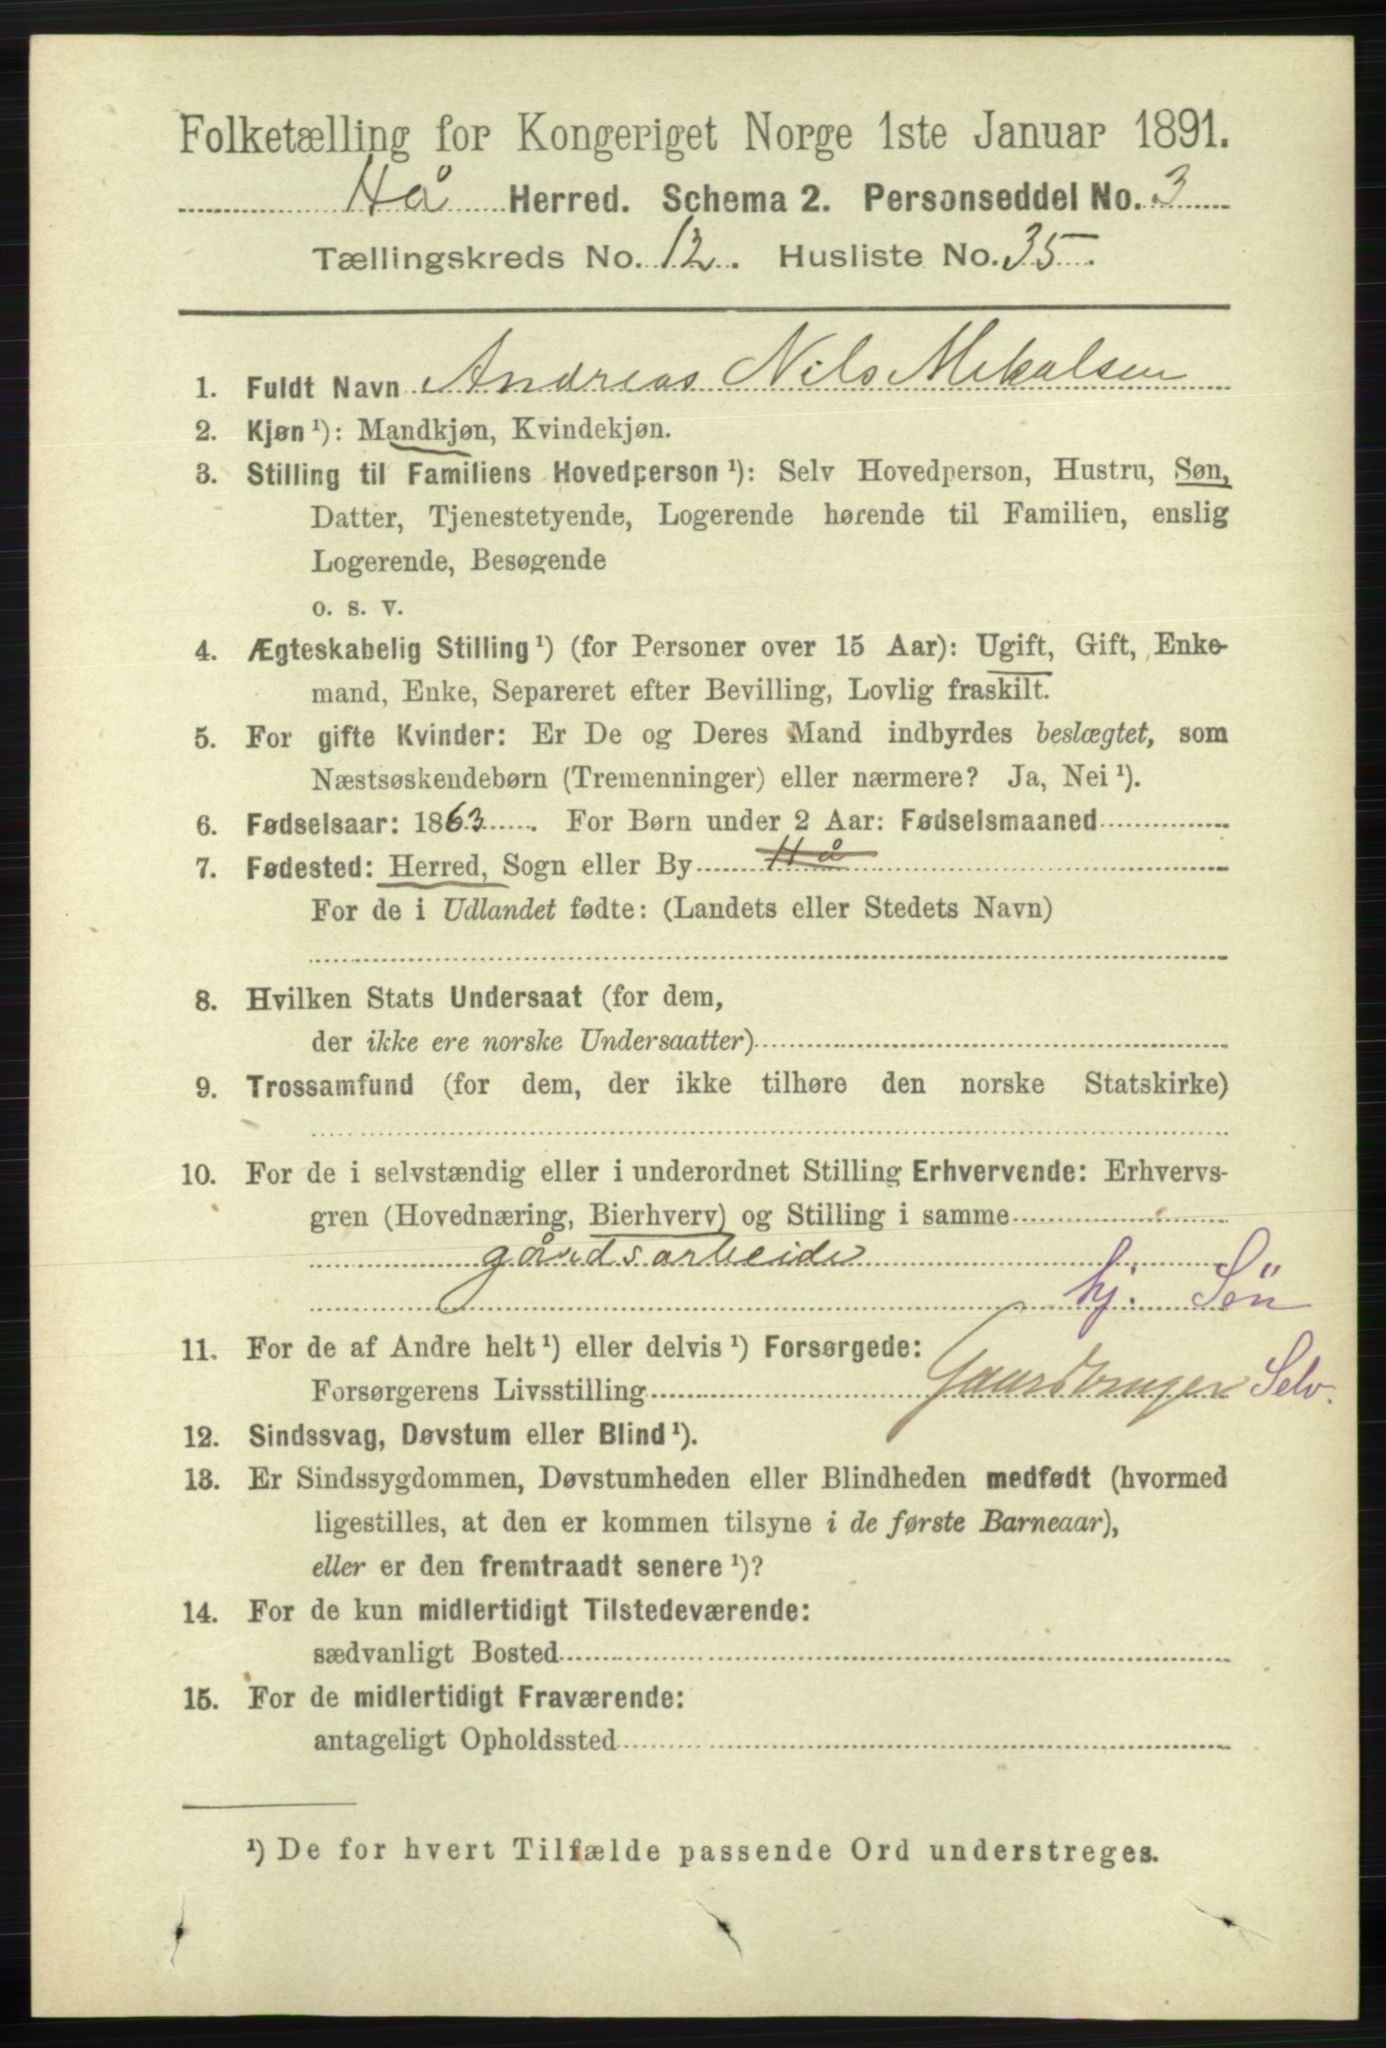 Folketælling for Kongeriget Norge 1ste Januar 1891.
Hå Herred. Schema 2. Personseddel No. 3
Tællingskreds No. 12. Husliste No. 35.
1. Fuldt Navn Andreas Nils Mikalsen
2. Kjøn¹): Mandkjøn, Kvindekjøn.
3. Stilling til Familiens Hovedperson¹): Selv Hovedperson, Hustru, Søn,
Datter, Tjenestetyende, Logerende hørende til Familien, enslig
Logerende, Besøgende
o. s. v.
4. Ægteskabelig Stilling¹) (for Personer over 15 Aar): Ugift, Gift, Enke-
mand, Enke, Separeret efter Bevilling, Lovlig fraskilt.
5. For gifte Kvinder: Er De og Deres Mand indbyrdes beslægtet, som
Næstsøskendebørn (Tremenninger) eller nærmere? Ja, Nei¹).
6. Fødselsaar: 1863. For Børn under 2 Aar: Fødselsmaaned
7. Fødested: Herred, Sogn eller By Hå
For de i Udlandet fødte: (Landets eller Stedets Navn)
8. Hvilken Stats Undersaat (for dem,
der ikke ere norske Undersaatter)
9. Trossamfund (for dem, der ikke tilhøre den norske Statskirke)
10. For de i selvstændig eller i underordnet Stilling Erhvervende: Erhvervs-
gren (Hovednæring, Bierhverv) og Stilling i samme
gårdsarbeide
hj. Sön
11. For de af Andre helt¹) eller delvis¹) Forsørgede:
Forsørgerens Livsstilling Gaardbruger Selv.
12. Sindssvag, Døvstum eller Blind¹).
13. Er Sindssygdommen, Døvstumheden eller Blindheden medfødt (hvormed
ligestilles, at den er kommen tilsyne i de første Barneaar),
eller er den fremtraadt senere¹)?
14. For de kun midlertidigt Tilstedeværende:
sædvanligt Bosted
15. For de midlertidigt Fraværende:
antageligt Opholdssted
¹) De for hvert Tilfælde passende Ord understreges.